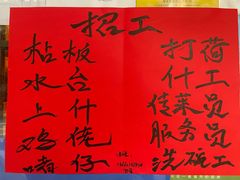 招工
粘板 打荷
水台 什工
上什 传菜员
鸡佬 服务员
啫仔 洗碗工